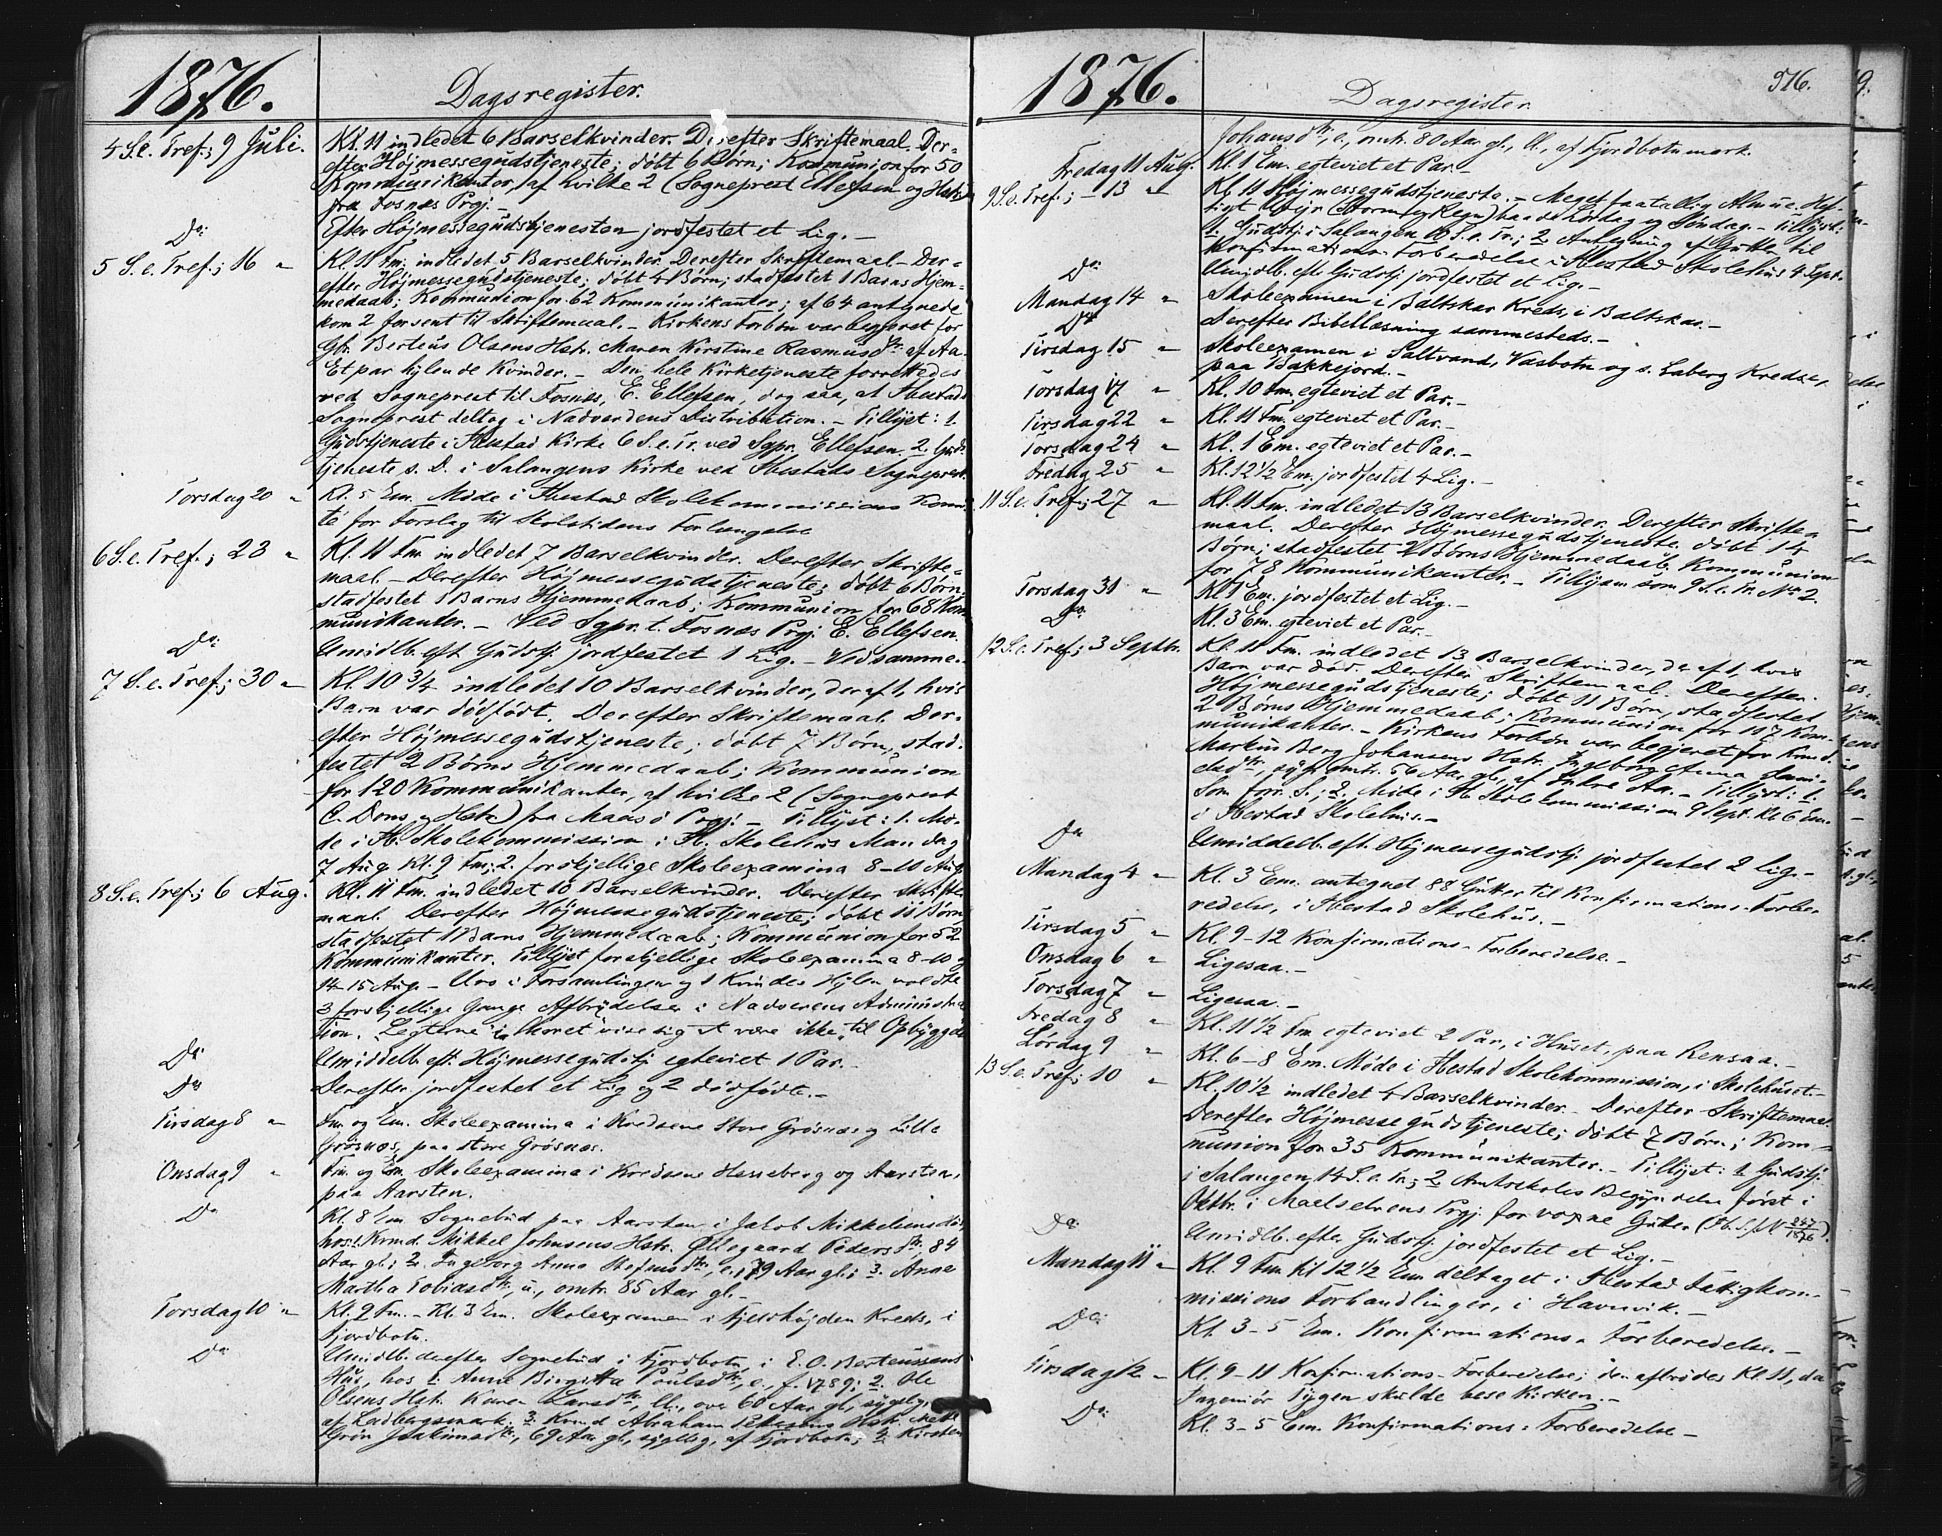 1876.
Dagsregister.
4 S. e. Tref.; 9 Juli. Kl. 11 indledet 6 Barselkvinder. Derefter Skriftemaal. Der-
efter Højmessegudstjeneste; døbt 6 Børn; Kommunion for 50
Kommunikanter, af hvilke 2 (Sogneprest Ellefsen og Hstr.)
fra Fosnæs Prgj.
Do Efter Højmessegudstjenesten jordfestet et Lig. —
5 S. e. Tref.; 16 " Kl. 11 Fm. indledet 5 Barselkvinder. Derefter Skriftemaal. Der-
efter Højmessegudstjeneste; døbt 4 Børn; stadfestet 1 Barns Hjem-
medaab; Kommunion for 62 Kommunikanter; af 64 antegnede
kom 2 for sent til Skriftemaal. — Kirkens Forbøn var begjeret for
Gbr. Berteus Olsens Hstr. Maren Kirstine Rasmusdtr. af Aa.
Et par hylende Kvinder. — Den hele Kirketjeneste forrettedes
ved Sogneprest til Fosnes, E. Ellefsen, dog saa, at Ibestads
Sogneprest deltog i Nadverdens Distribution. — Tillyst: 1.
Gudstjeneste i Ibestad Kirke 6 S. e. Tr. ved Sgpr. Ellefsen. 2. Guds-
tjeneste s. D. i Salangens Kirke ved Ibestads Sogneprest.
Torsdag 20 " Kl. 5 Em. Møde i Ibestad Skolekommissions Komi-
té for Forslag til Skoletidens Forlængelse
6 S. e. Tref.; 23 " Kl. 11 Fm. indledet 7 Barselkvinder. Derefter Skrifte-
maal. — Derefter Højmessegudstjeneste; døbt 6 Børn;
stadfestet 1 Barns Hjemmedaab; Kommunion for 68 Kom-
munikanter. — Ved Sgpr. t. Fosnæs Prgj. E. Ellefsen.
Do Umidlb. eft. Gudstj. jordfestet 1 Lig. — Ved samme. —
7 S. e. Tref.; 30 " Kl. 10 3/4 indledet 10 Barselkvinder, deraf 1, hvis
Barn var dødfødt. Derefter Skriftemaal. Der-
efter Højmessegudstjeneste; døbt 7 Børn, stad-
festet 2 Børns Hjemmedaab; Kommunion
for 120 Kommunikanter, af hvilke 2 (Sogneprest
C. Dons og Hstr.) fra Maasø Prgj. — Tillyst: 1. Mø-
de i Ib. Skolekommission i Ib. Skolehus Mandag
7 Aug. Kl. 9 Fm; 2. forskjellige Skoleexamina 8–10 Aug.
8 S. e. Tref.; 6 Aug. Kl. 11 Fm. indledet 10 Barselkvinder. Derefter Skrifte-
maal. Derefter Højmessegudstjeneste; døbt 11 Børn;
stadfestet 1 Barns Hjemmedaab; Kommunion for 52
Kommunikanter. Tillyst forskjellige Skoleexamina 8–10 og
14–15 Aug. — Uro i Forsamlingen og 1 Kvindes Hylen voldte
3 forskjellige Gange Afbrydelser i Nadverens Administra-
tion. Lægterne i Koret viser sig at være ikke til Opbyggelse
Do Umiddelb. eft. Højmessegudstj. egteviet 1 Par. —
Do Derefter jordfestet et Lig og 2 dødfødte. —
Tirsdag 8 " Fm. og Em. Skoleexamina i Kredsene Store Grøsnæs og Lille
Grøsnæs, paa store Grøsnæs.
Onsdag 9 " Fm. og Em. Skoleexamina i Kredsene Hesseberg og Aarsten,
paa Aarsten.
Do Kl. 8 Em. Sognebud paa Aarsten i Jakob Mikkelsens Hus
hos 1. Krmd. Mikkel Johnsens Hstr. Øllegaard Pedersdtr., 84
Aar gl.; 2. Ingeborg Anna dtr., e., 79 Aar gl.; 3. Anne
Martha Tobiasdtr., u., omtr. 85 Aar gl. —
Torsdag 10 " Kl. 9 Fm. – Kl. 3 Em. Skoleexamen i Kreds, i
Fjordbotn.
Do Umidlb. derefter Sognebud i Fjordbotn, i E. O. Berteussens
Hus, hos 1. Anne Birgitta Poulsdtr., e., f. 1789; 2. Ole
Olsens Hstr. Karen Larsdtr., ll., over 60 Aar gl., sygelig,
af Ladbergsmark; 3. Krmd. Abraham Hstr. Mette
Grøn Joakimsdtr., 69 Aar gl., sygelig, af Fjordbotn; 4. Kirsten
1876.
Dagsregister.
376.
Johansdtr., e., omtr. 80 Aar gl., ll., af Fjordbotnmark.
Fredag 11 Aug. Kl. 1 Em. egteviet et Par. —
9 S. e. Tref.; — 13 " Kl. 11 Højmessegudstjeneste. — Meget faatallig Almue. Hef-
tigt Vejr (Storm og Regn) baade Lørdag og Søndag. — Tillyst:
1. Gudstj. i Salangen 10 S. e. Tr.; 2. Antegning af Gutter til
Konfirmations-Forberedelse i Ibestad Skolehus 4 Sept.
Do Umidlb. eft. Gudstj. jordfestet et Lig. —
Mandag 14 " Skoleexamen i Baltskar Kreds, i Baltskar. —
Do Derefter Bibellæsning sammesteds. —
Tirsdag 15 " Skoleexamen i Saltvand, Vasbotn og s. Laberg Kredse,
paa Bakkejord. —
Torsdag 17 " Kl. 10 Fm. egteviet et Par. —
Tirsdag 22 " Kl. 11 Fm. egteviet et Par. —
Torsdag 24 " Kl. 1 Em. egteviet et Par. —
Fredag 25 " Kl. 12 1/2 Em. jordfestet 4 Lig. —
11 S. e. Tref.; 27 " Kl. 11 Fm. indledet 13 Barselkvinder. Derefter Skrifte-
maal. Derefter Højmessegudstjeneste. døbt 14
Børn; stadfestet 2 Børns Hjemmedaab. Kommunion
for 78 Kommunikanter. — Tillyst som 9 S. e. Tr. No 2.
Torsdag 31 " Kl. 1 Em. jordfestet et Lig. —
Do Kl. 3 Em. egteviet et Par. —
12 S. e. Tref.; 3 Septbr. Kl. 11 Fm. indledet 13 Barselkvinder, deraf 1, hvis
Barn var død. Derefter Skriftemaal. Derefter
Højmessegudstjeneste; døbt 11 Børn, stadfestet
2 Børns Hjemmedaab; Kommunion for 107 Kom-
munikanter. — Kirkens Forbøn var begjeret for Krmd.
Markus Berg Johansens Hstr. Ingeborg Anna Dani-
elsdtr., syg, omtr. 56 Aar gl., af Indre Aa. — Tillyst: 1.
Som forr. S.; 2. Møde i Ib. Skolekommission 9 Sept. Kl. 6 Em.
i Ibestad Skolehus. —
Do Umiddelb. eft. Højmessegudstj. jordfestet 2 Lig. —
Mandag 4 " Kl. 3 Em. antegnet 88 Gutter til Konfirmations-Forbe-
redelse, i Ibestad Skolehus. —
Tirsdag 5 " Kl. 9–12 Konfirmations-Forberedelse. —
Onsdag 6 " Ligesaa. —
Torsdag 7 " Ligesaa. —
Fredag 8 " Kl. 11 1/2 Fm. egteviet 2 Par, i Huset, paa Rensaa. —
Lørdag 9 " Kl. 6–8 Em. Møde i Ibestad Skolekommission, i Skolehuset. —
13 S. e. Tref.; 10 " Kl. 10 1/2 indledet 4 Barselkvinder. — Derefter Skriftemaal.
Derefter Højmessegudstjeneste; døbt 7 Børn; Kom-
munion for 35 Kommunikanter. — Tillyst: 1. Gudstj.
i Salangen 14 S. e. Tr.; 2. Amtsskoles Begyndelse først i
Oktbr. i Maalselvens Prgj. for voxne Gutter (Ib. S. p. N 247/1876).
Do Umidlb. efter Gudstj. jordfestet et Lig. —
Mandag 11 " Kl. 9 Fm. til 12 1/2 Em. deltaget i Ibestad Fattigkom-
missions Forhandlinger, i Havnvik. —
Do Kl. 3–5 Em. Konfirmations-Forberedelse. —
Tirsdag 12 " Kl. 9–11 Konfirmations-Forberedelse; den afbrødes Kl. 11, da
Ingeniør Sygen skulde bese Kirken. —
Do Kl. 3–5 Em. Konfirmations-Forberedelse —